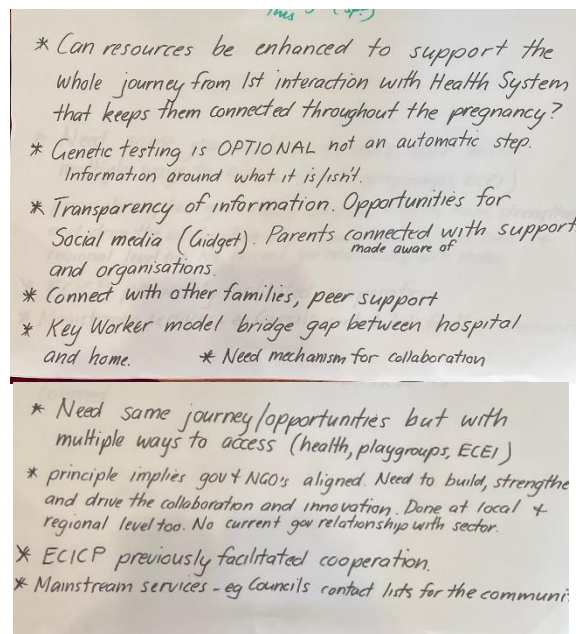 This (sp.)
* Can resources be enhanced to support the
whole journey from 1st interaction with Health System
that keeps them connected throughout the pregnancy?
* Genetic testing is OPTIONAL not an automatic step.
Information around what it is/isn't.
* Transparency of information. Opportunities for
Social media (Gidget). Parents connected with support
made aware of
and organisations.
* Connect with other families, peer support
* Key Worker model bridge gap between hospital
and home. * Need mechanism for collaboration
* Need same journey/opportunities but with
multiple ways to access (health, playgroups, ECEI)
* principle implies gov + NGO's aligned. Need to build, strengthe
and drive the collaboration and innovation. Done at local +
regional level too. No current gov relationship with sector.
* ECICP previously facilitated cooperation.
* Mainstream services - eg Councils contact lists for the communi